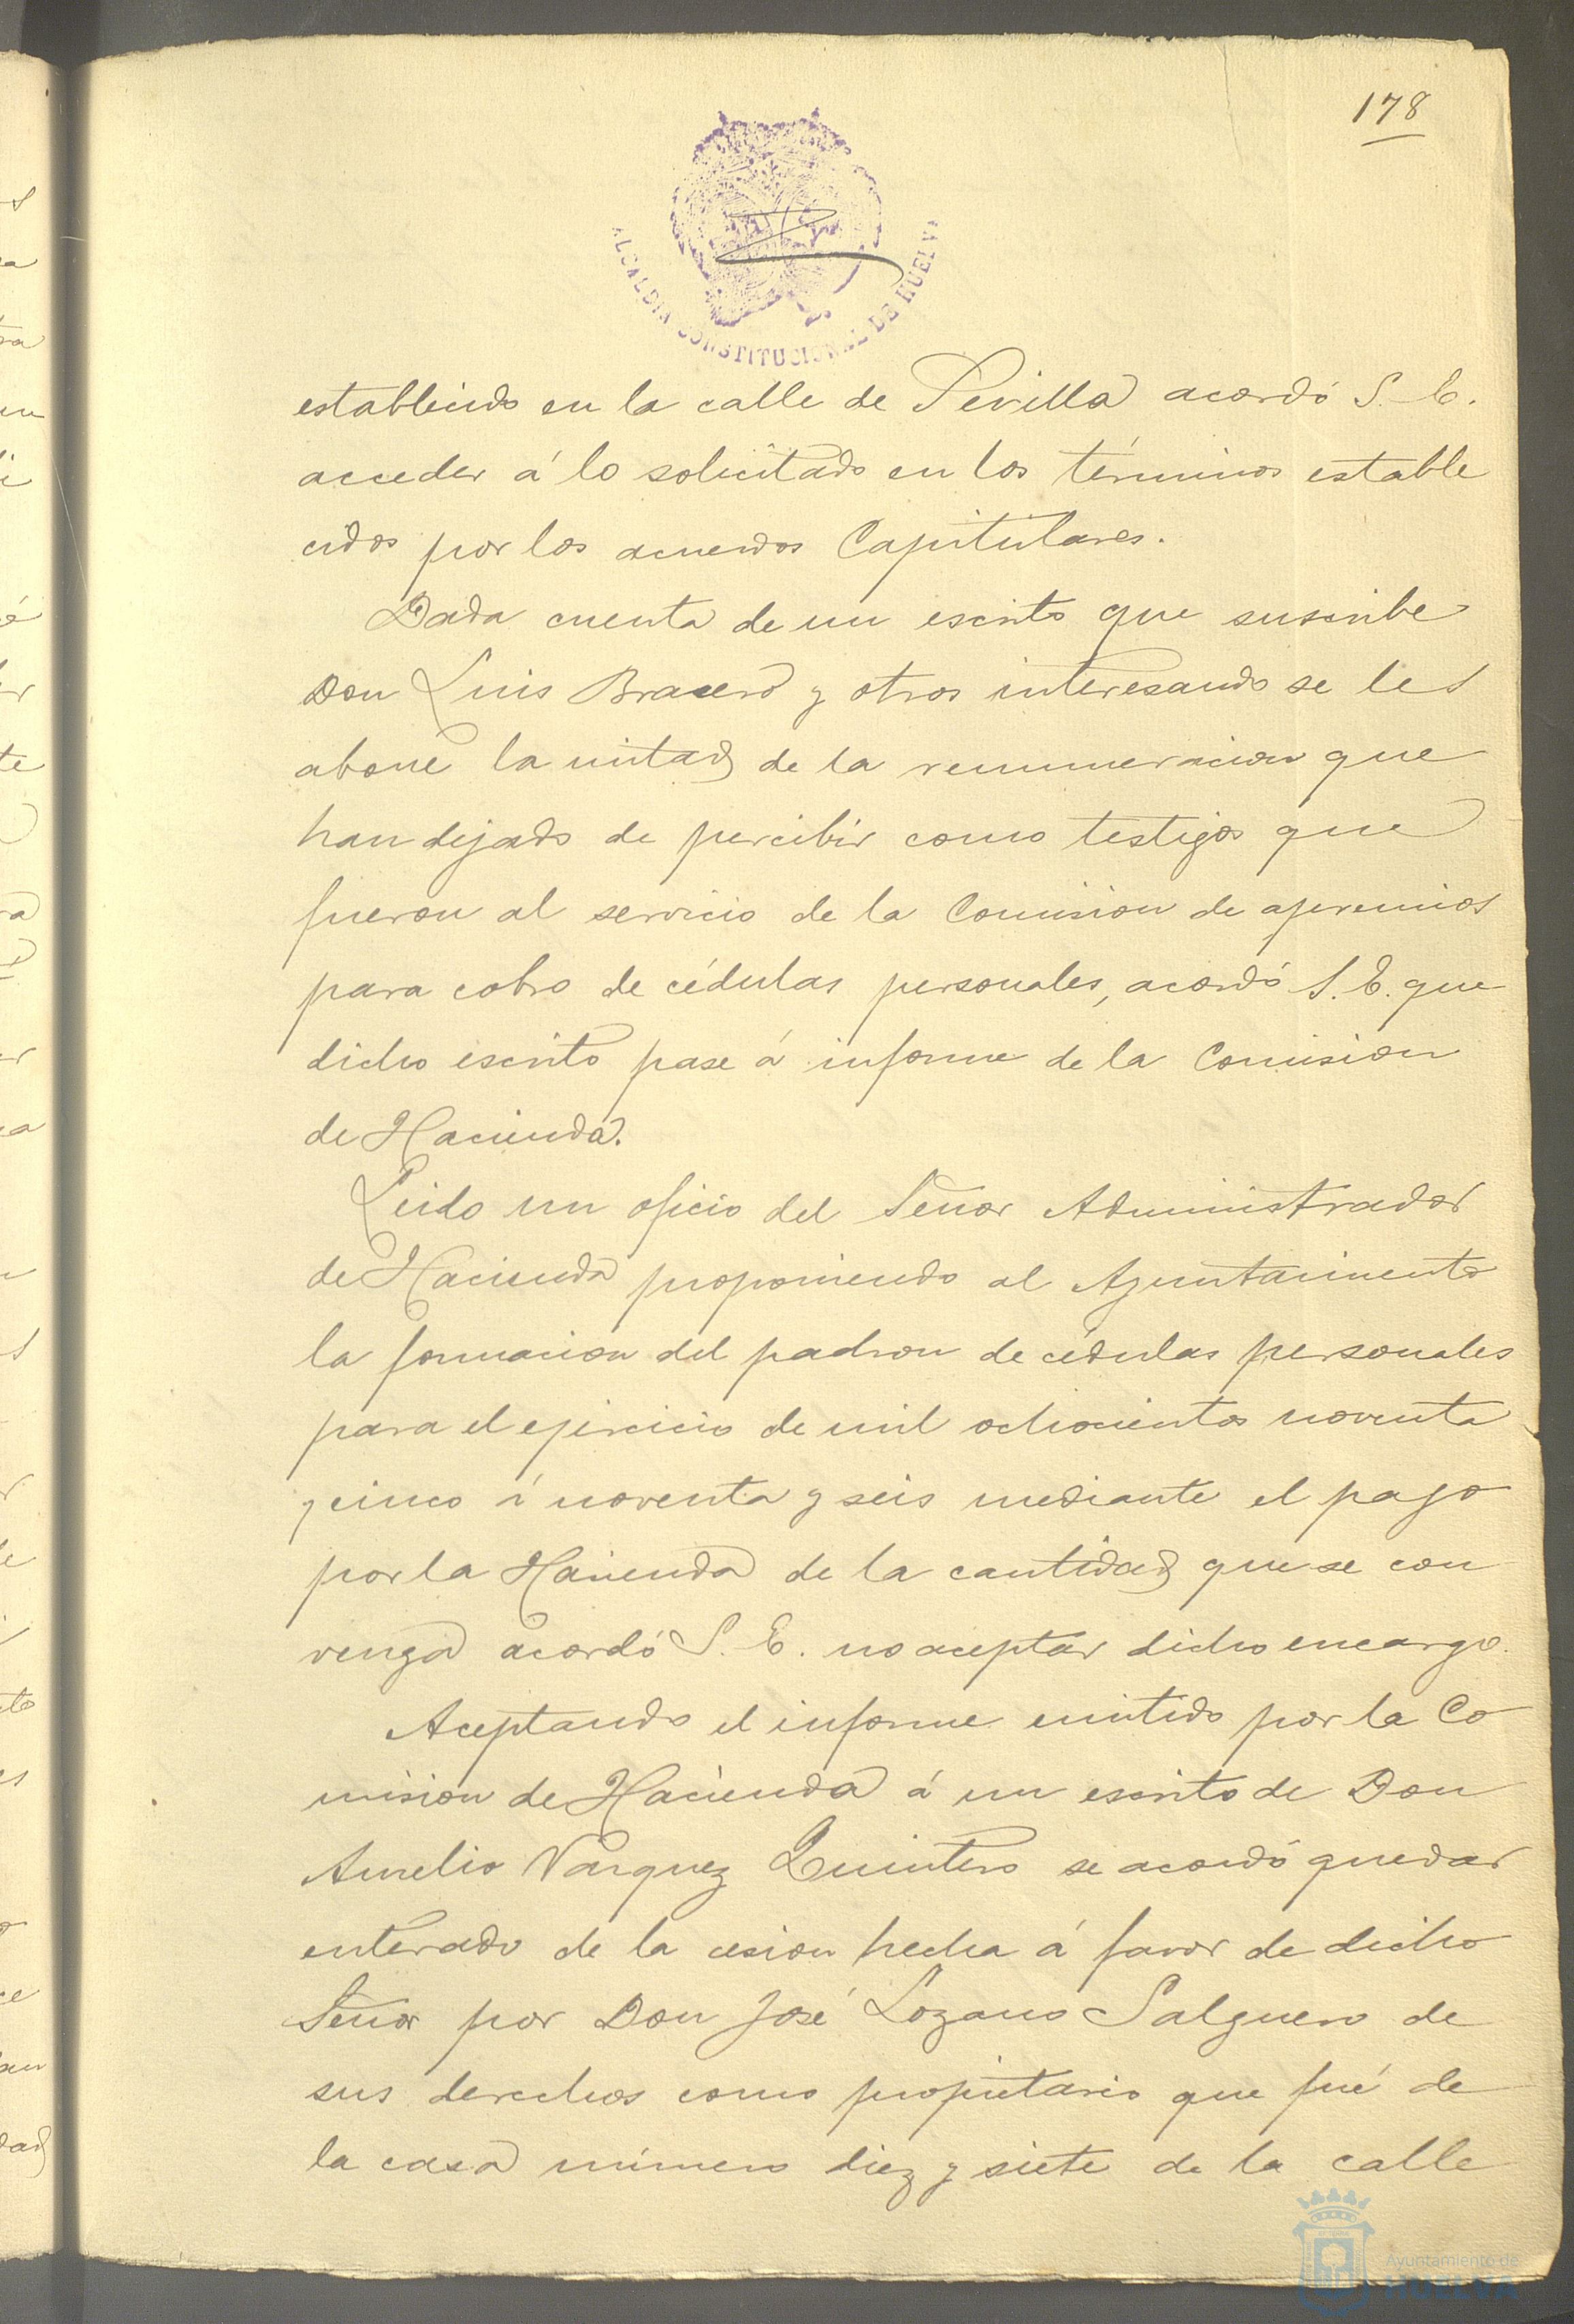 178
ALCALDIA CONSTITUCIONAL DE HUELVA
establecido en la calle de Sevilla acordó S. E.
acceder á lo solicitado en los términos estable
cidos por los acuerdos Capitulares.
Dada cuenta de un escrito que suscribe
Don Luis Bracero y otros interesando se les
abone la mitad de la remuneracion que
han dejado de percibir como testigos que
fueron al servicio de la Comision de apremios
para cobro de cédulas personales, acordó S. E. que
dicho escrito pase á informe de la Comision
de Hacienda.
Leido un oficio del Señor Administrador
de Hacienda proponiendo al Ayuntamiento
la formacion del padron de cédulas personales
para el ejercicio de mil ochocientos noventa
y cinco á noventa y seis mediante el pago
por la Hacienda de la cantidad que se con
venga acordó S. E. no aceptar dicho encargo.
Aceptando el informe emitido por la Co
mision de Hacienda á un escrito de Don
Aurelio Vazquez Quintero se acordó quedar
enterado de la cesion hecha á favor de dicho
Señor por Don José Lozano Salguero de
sus derechos como propietario que fué de
la casa número diez y siete de la calle
Ayuntamiento de
HUELVA